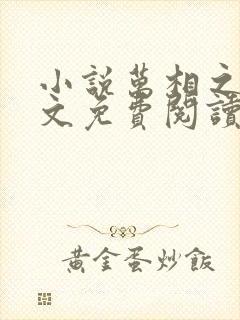 小說萬相之
文免費閱讀
黃金蛋炒飯